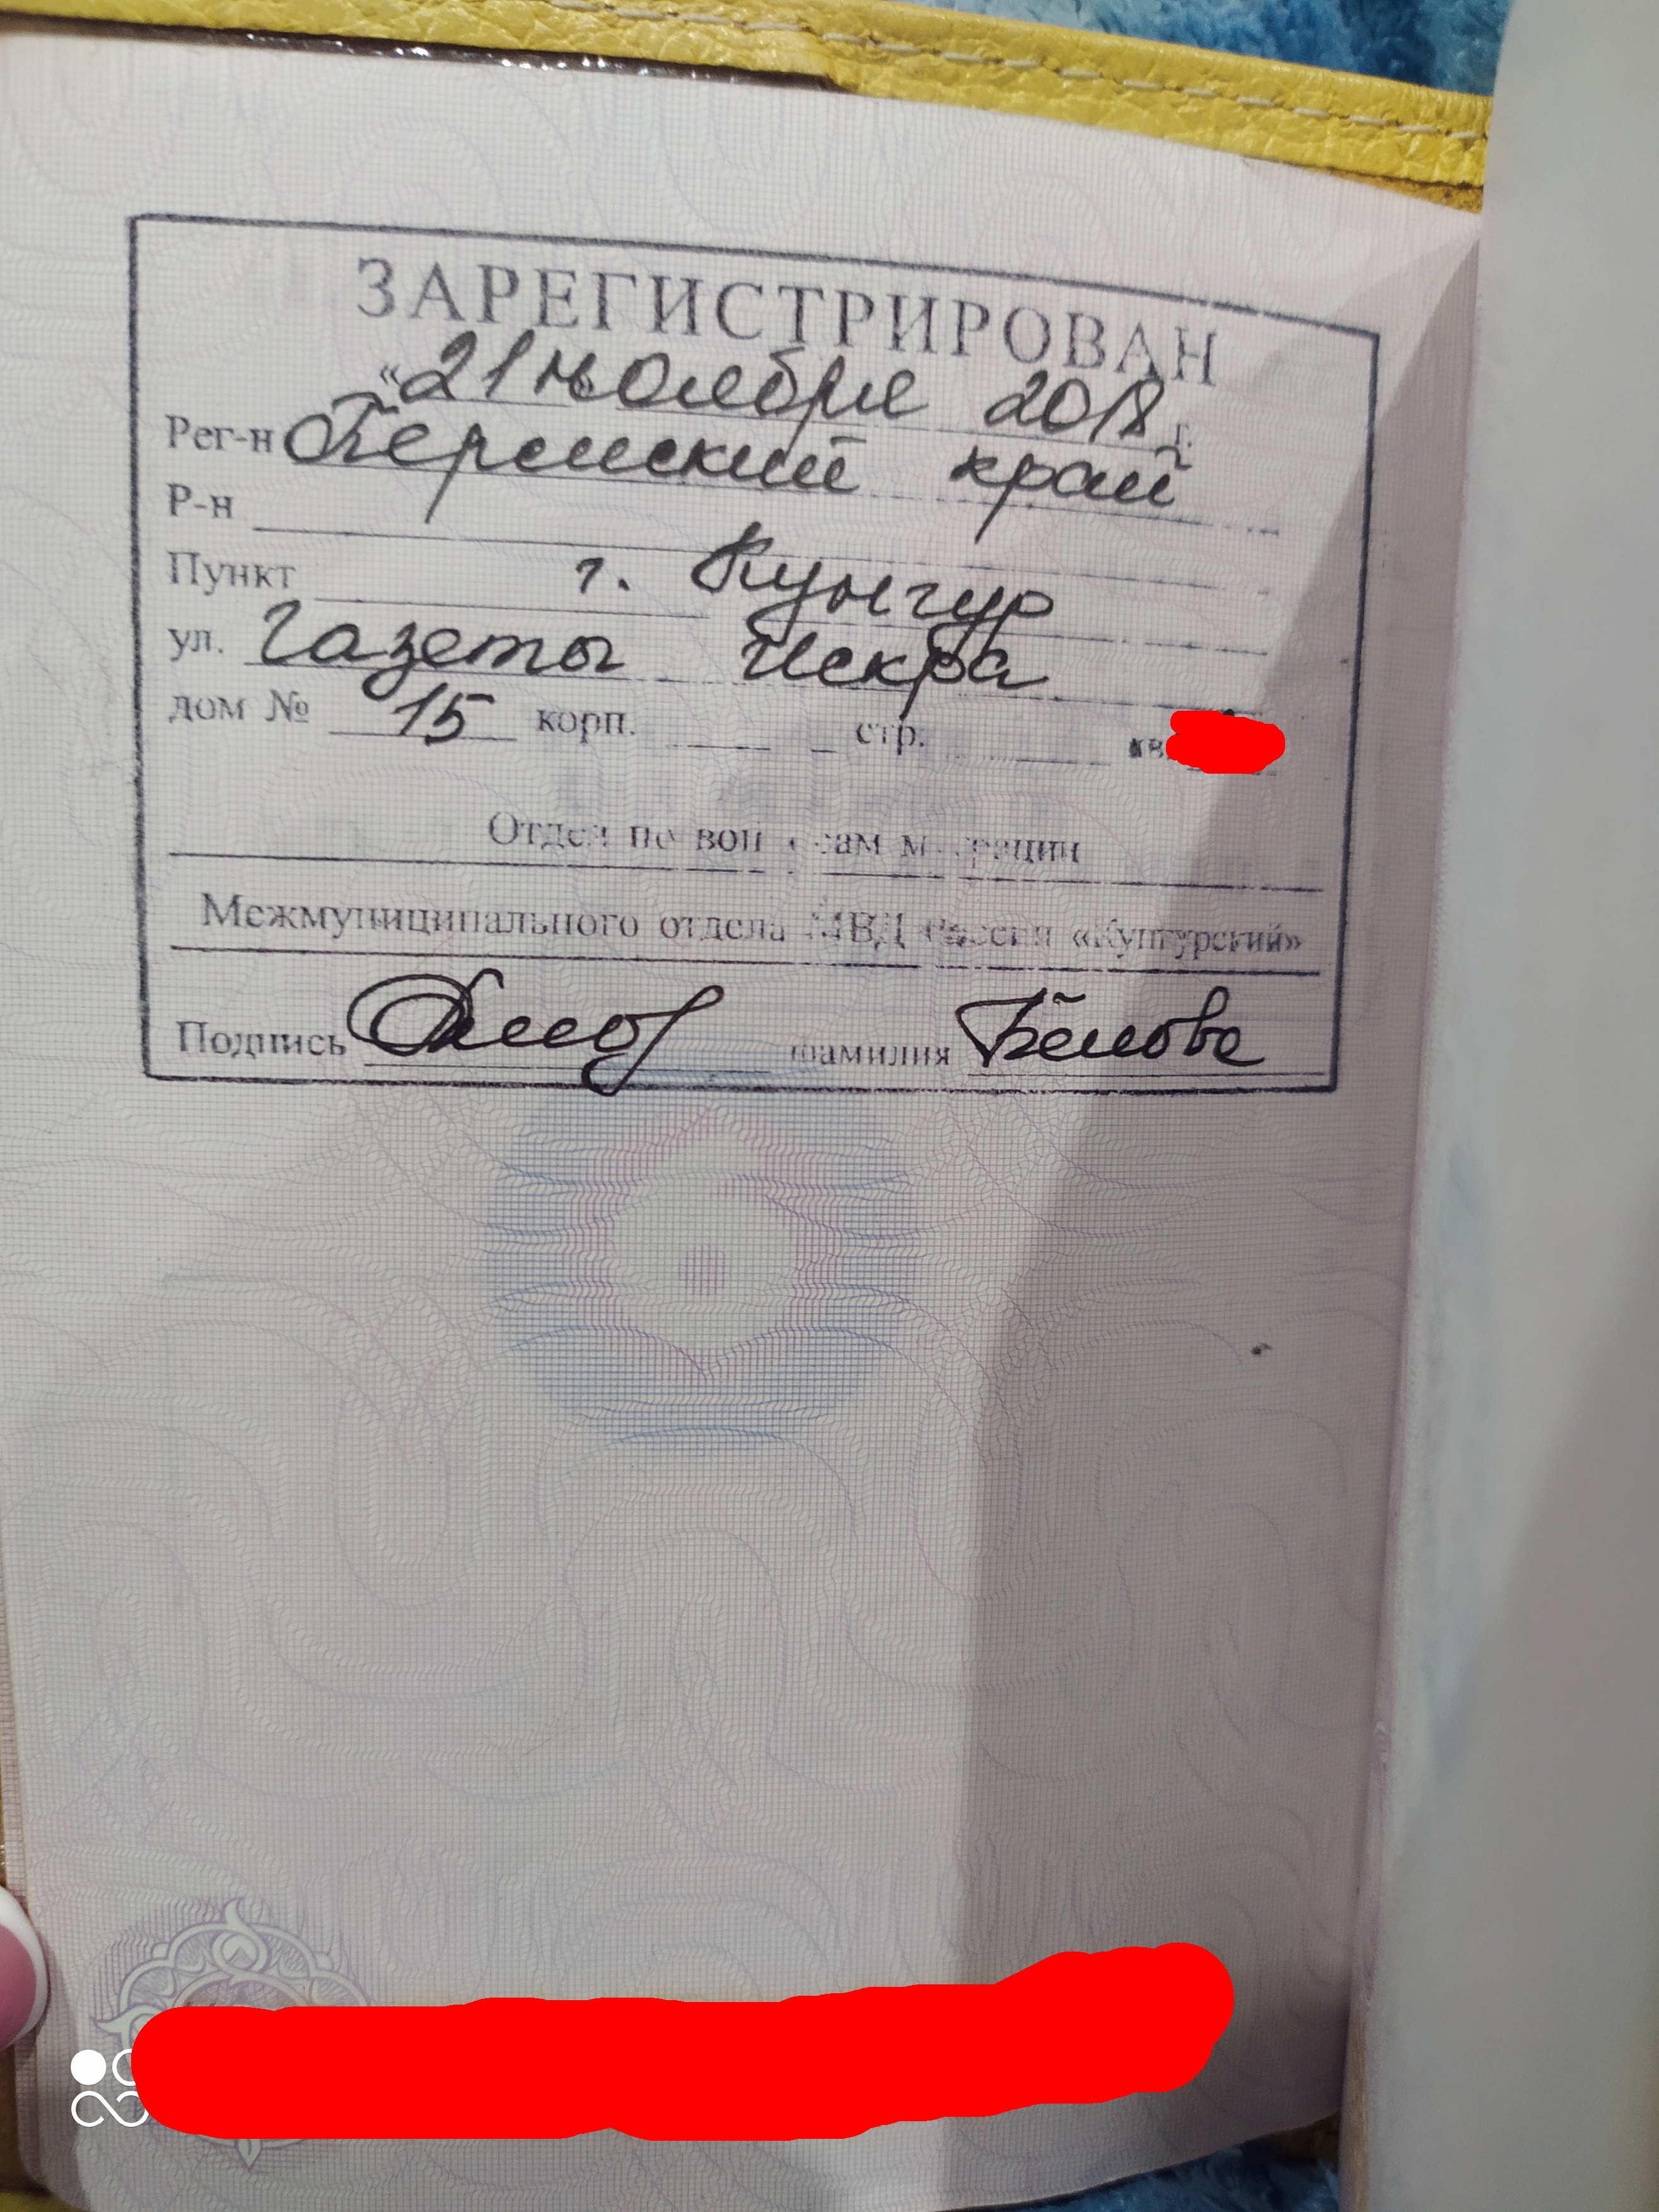 ЗАРЕГИСТРИРОВАН
«21 ноября 2018 г.
Рег-н Пермский край
Р-н
Пункт г. Кунгур
ул. Газеты Искра
дом № 15 корп. стр. кв.
Отдел по вопросам миграции
Межмуниципального отдела МВД России «Кунгурский»
Подпись фамилия